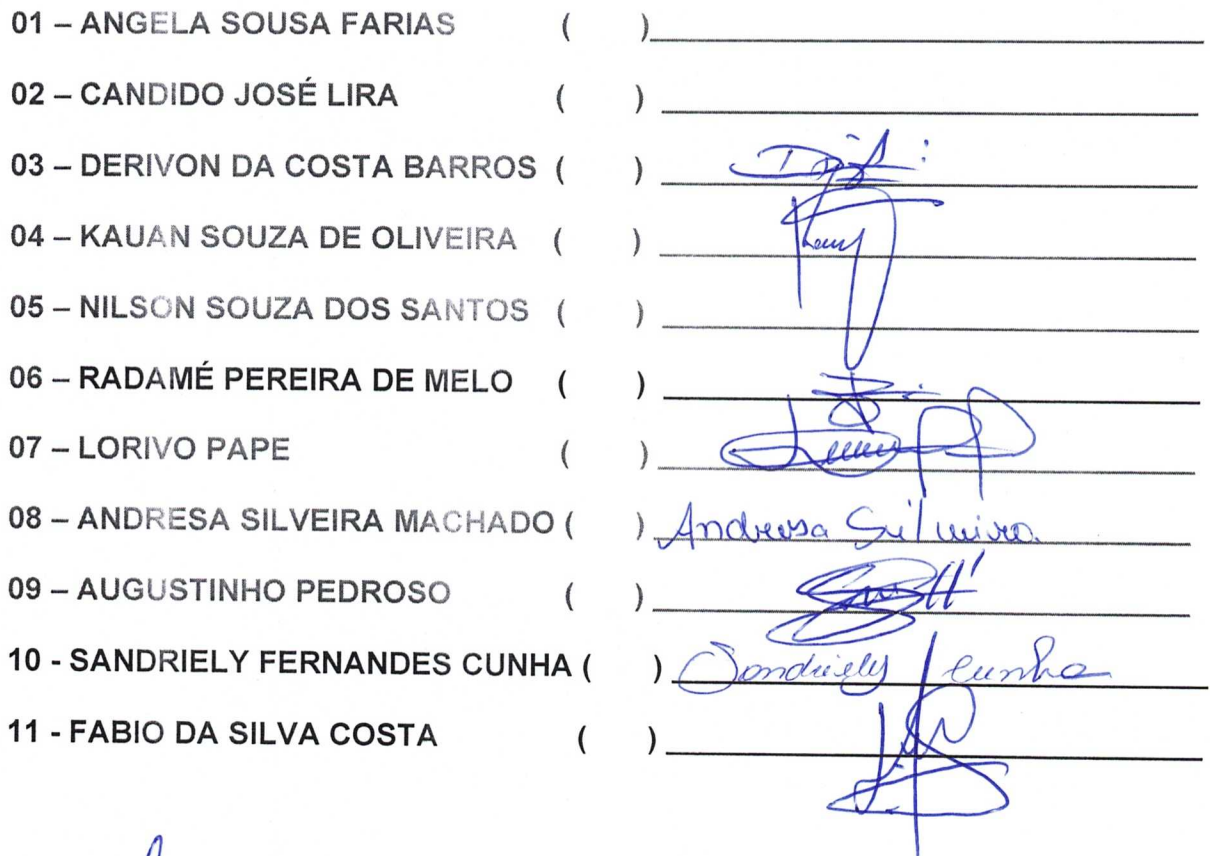 01 – ANGELA SOUSA FARIAS ( )
02 – CANDIDO JOSÉ LIRA ( )
03 – DERIVON DA COSTA BARROS ( )
04 – KAUAN SOUZA DE OLIVEIRA ( )
05 – NILSON SOUZA DOS SANTOS ( )
06 – RADAMÉ PEREIRA DE MELO ( )
07 – LORIVO PAPE ( )
08 – ANDRESA SILVEIRA MACHADO ( ) Andresa Silveira
09 – AUGUSTINHO PEDROSO ( )
10 - SANDRIELY FERNANDES CUNHA ( ) Sandriely Cunha
11 - FABIO DA SILVA COSTA ( )